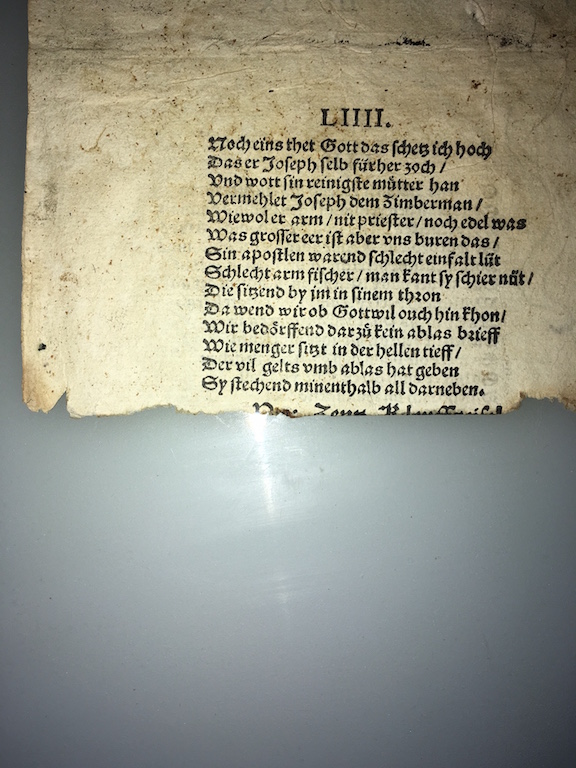 LIIII.
Noch eins thet Gott das schetz ich hoch
Das er Joseph selb fürher zoch /
Vnd wott sin reinigste mütter han
Vermehlet Joseph dem Zimberman /
Wiewol er arm / nit priester / noch edel was
Was grosser eer ist aber vns buren das /
Sin apostlen warend schlecht einfalt lüt
Schlecht arm fischer / man kant sy schier nüt /
Die sitzend by jm in sinem thron
Da wend wir ob Gott wil ouch hin khon /
Wir bedörffend darzů kein ablas brieff
Wie menger sitzt in der hellen tieff /
Der vil gelts vmb ablas hat geben
Sy stechend minenthalb all darneben.